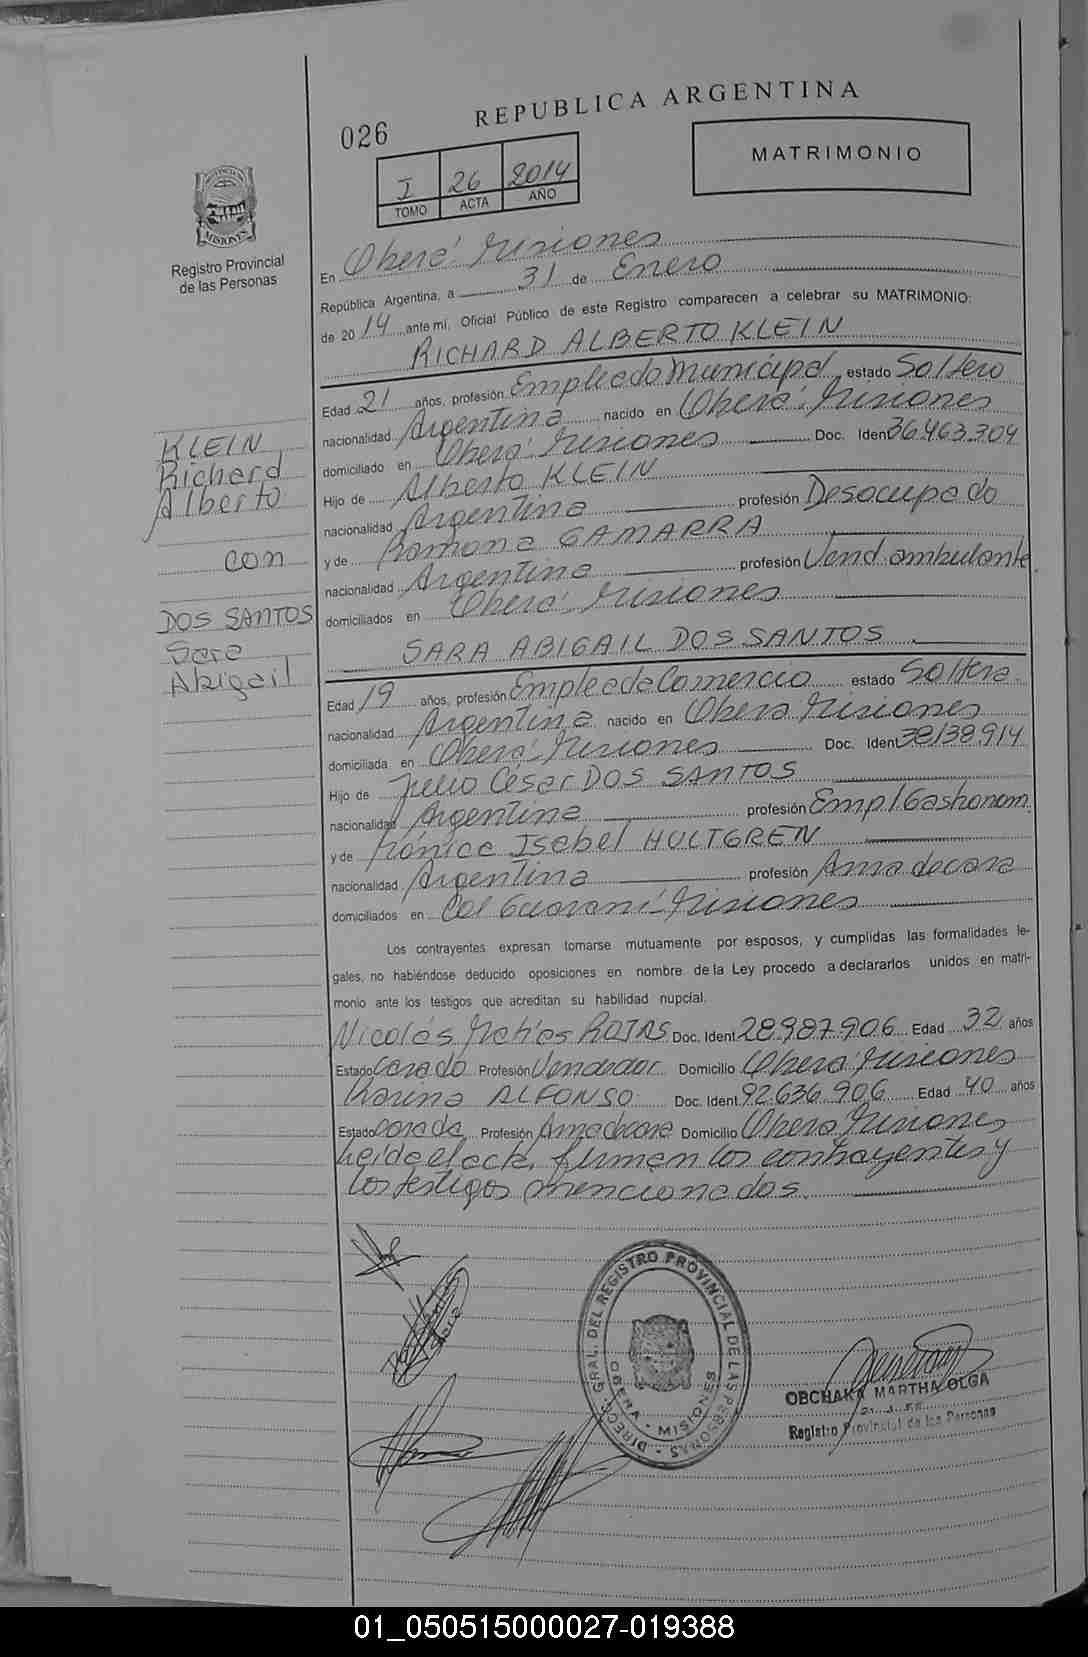 REPUBLICA ARGENTINA
026
MATRIMONIO
I 26 2014
TOMO ACTA AÑO
Registro Provincial
de las Personas
En Oberá Misiones
República Argentina, a 31 de Enero
de 2014 ante mí, Oficial Público de este Registro comparecen a celebrar su MATRIMONIO:
RICHARD ALBERTO KLEIN
Edad 21 años, profesión Empleado Municipal estado Soltero
nacionalidad Argentina nacido en Oberá Misiones
domiciliado en Oberá Misiones Doc. Iden 36.463.304
Hijo de Alberto KLEIN
nacionalidad Argentina profesión Desocupado
y de Ramona GAMARRA
nacionalidad Argentina profesión Vend. ambulante
domiciliados en Oberá Misiones
KLEIN
Richard
Alberto
con
DOS SANTOS
Sara
Abigail
SARA ABIGAIL DOS SANTOS
Edad 19 años, profesión Empleada Comercio estado Soltera
nacionalidad Argentina nacido en Obera Misiones
domiciliada en Oberá Misiones Doc. Ident 38138.914
Hijo de Julio César DOS SANTOS
nacionalidad Argentina profesión Empl Gastronom
y de Mónica Isabel HULTGREN
nacionalidad Argentina profesión Ama de casa
domiciliados en Col Guaraní Misiones
Los contrayentes expresan tomarse mutuamente por esposos, y cumplidas las formalidades le-
gales, no habiéndose deducido oposiciones en nombre de la Ley procedo a declararlos unidos en matri-
monio ante los testigos que acreditan su habilidad nupcial.
Nicolás Matías ROJAS Doc. Ident 28.987.906 Edad 32 años
Estado Casado Profesión Vendedor Domicilio Oberá Misiones
Karina ALFONSO Doc. Ident. 92.636.906 Edad 40 años
Estado Casada Profesión Ama de casa Domicilio Obera Misiones
Leida el acta, firman los contrayentes y
los testigos mencionados.
DIREC. GRAL. DEL REGISTRO PROVINCIAL DE LAS PERSONAS
OBERA - MISIONES
OBCHAKA MARTHA OLGA
Registro Provincial de las Personas
01_050515000027-019388